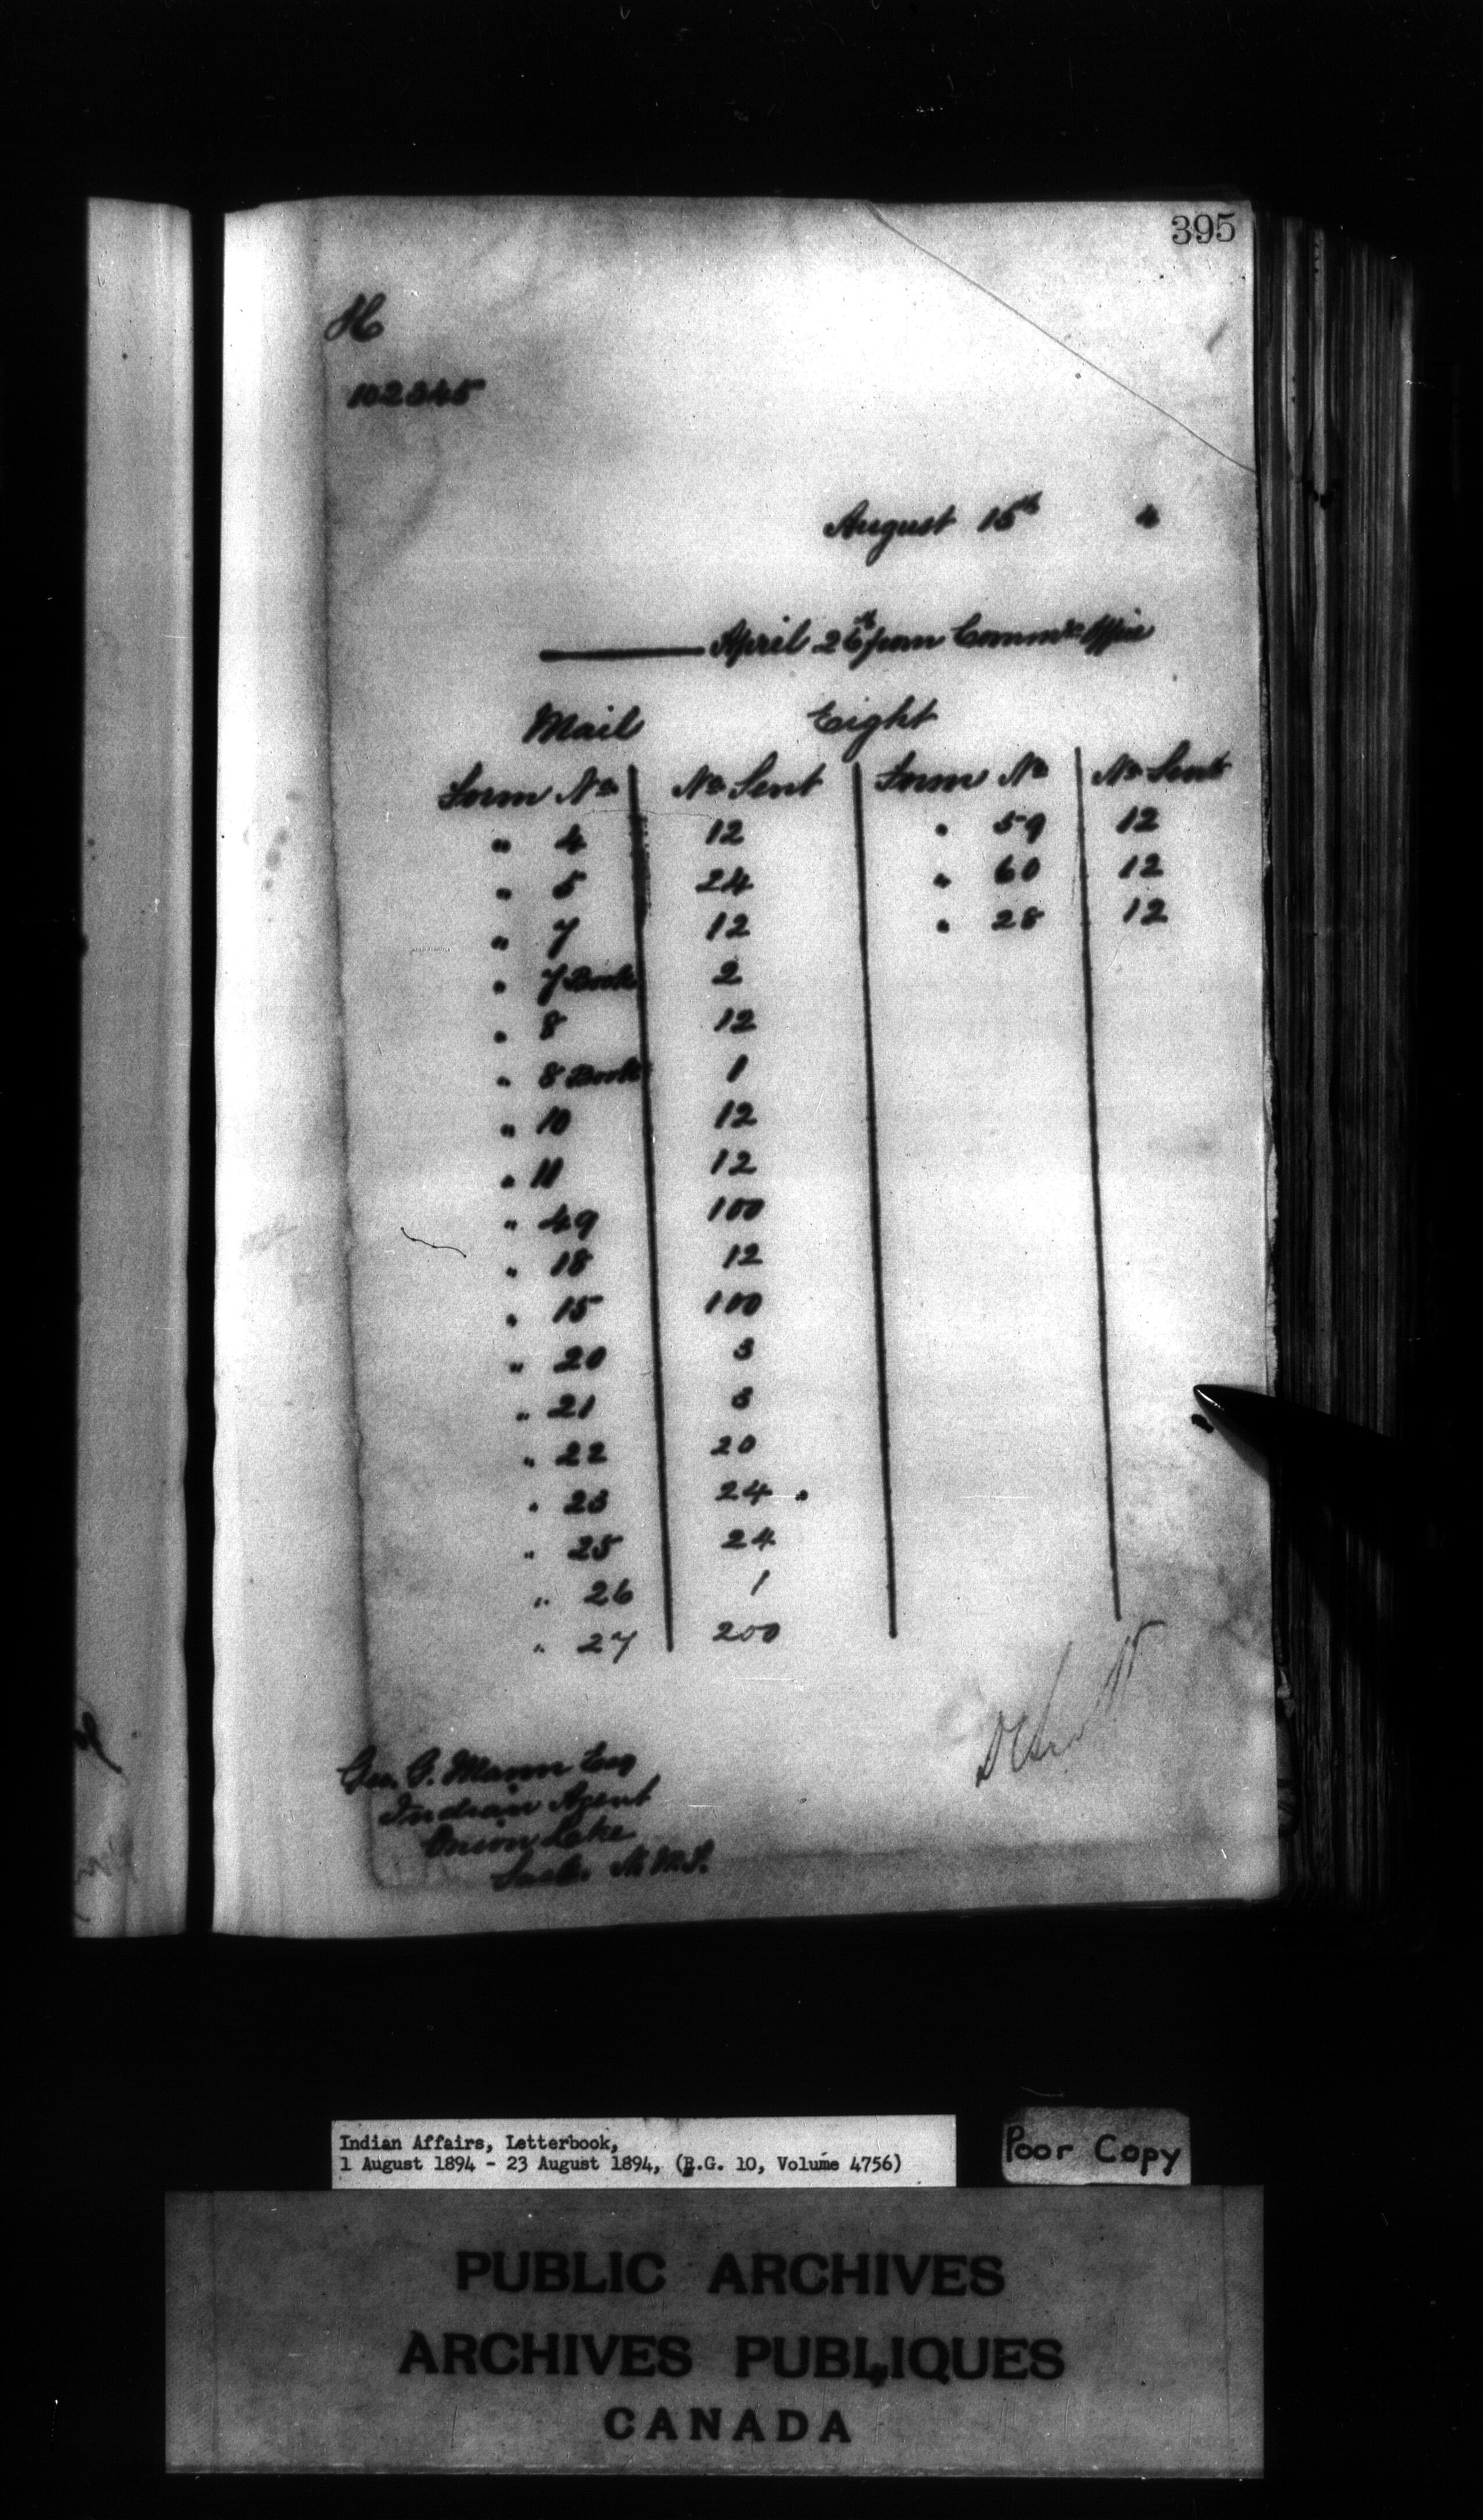 395
H
102345
August 15th 4
April 26th from Commrs Office
Mail Eight
Form No No Sent Form No No Sent
" 4 12 " 59 12
" 5 24 " 60 12
" 7 12 " 28 12
" 7 Book 2
" 8 12
" 8 Book 1
" 10 12
" 11 12
" 49 100
" 18 12
" 15 100
" 20 3
" 21 3
" 22 20
" 23 24
" 25 24
" 26 1
" 27 200
Geo. G. Mann Esq
Indian Agent
Onion Lake
Sask. N.W.T.
Indian Affairs, Letterbook,
1 August 1894 - 23 August 1894, (R.G. 10, Volume 4756)
Poor Copy
PUBLIC ARCHIVES
ARCHIVES PUBLIQUES
CANADA